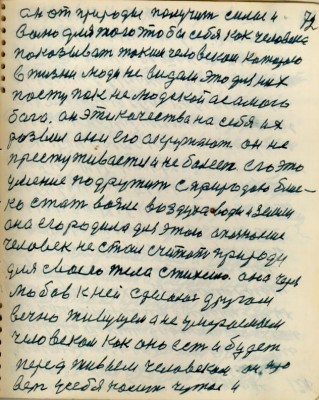 72
он от природы получит силы и
волю для того чтобы себя как человека
показывать таким человеком которого
в жизни люди не видали это для них
поступок не людской а самого
бога. он эти качества на себя их
развил они его окружают. он не
простуживается и не болеет его это
умение подружить с природою близ-
ко стать возле воздуха воды и земли
она его родила для этого а познание
человек не стал считать природу
для своего тела стихиею. она через
любов к ней сделает другом
вечно живущем а не умераемым
человеком как оно есть и будет
перед живием человеком. он
верг у себя чужое и